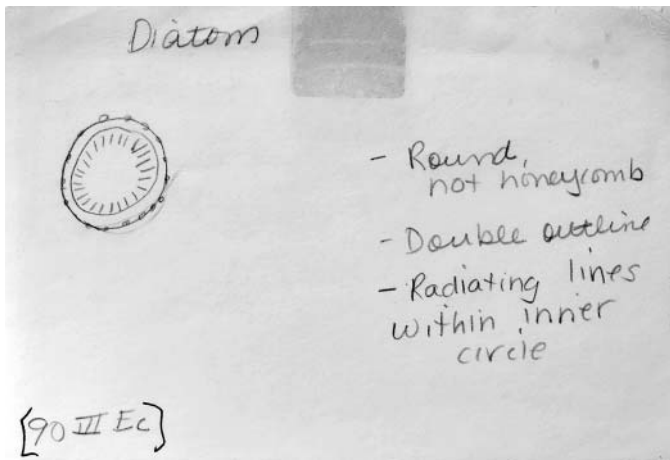 Diatom
- Round,
not honeycomb
- Double outline
- Radiating lines
within inner
circle
[90 III Ec]